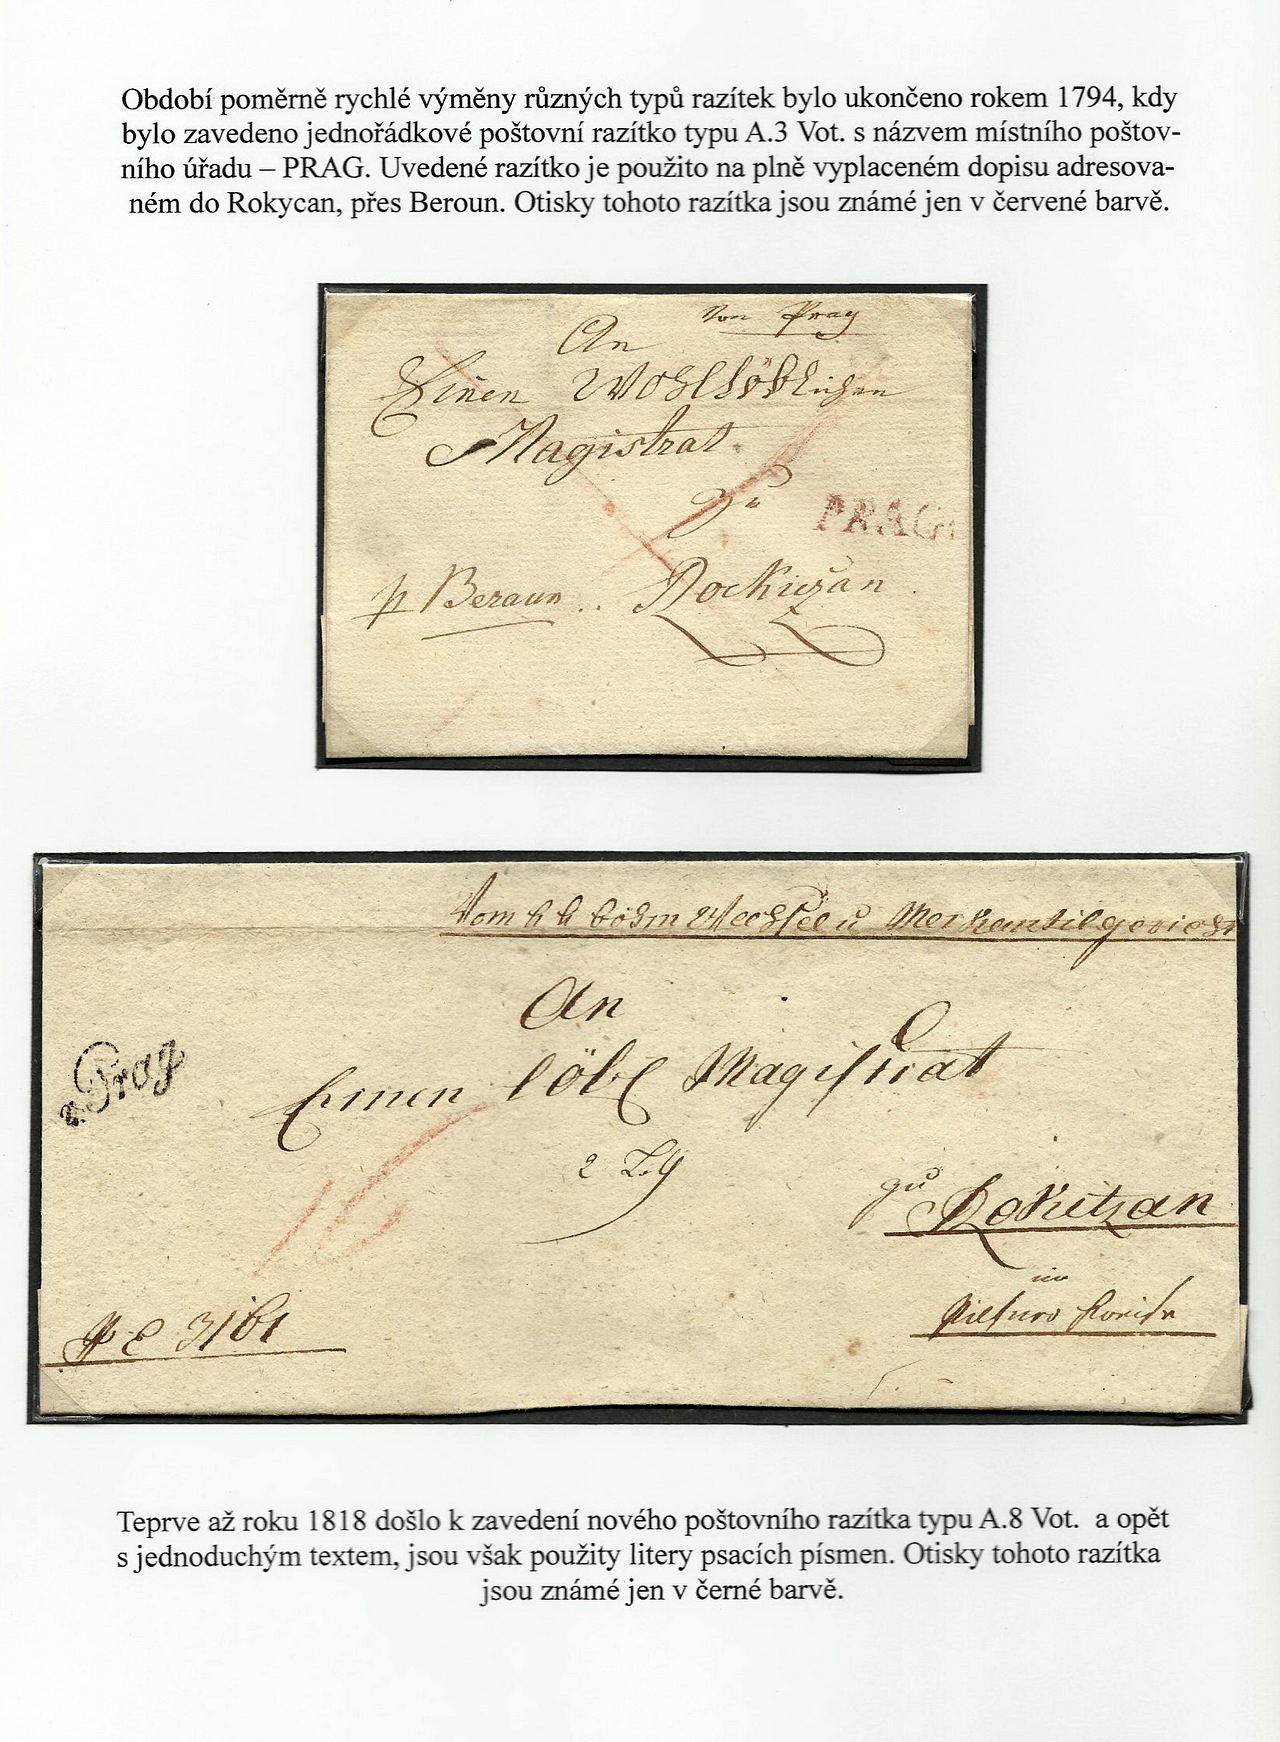 Období poměrně rychlé výměny různých typů razítek bylo ukončeno rokem 1794, kdy
bylo zavedeno jednořádkové poštovní razítko typu A.3 Vot. s názvem místního poštov-
ního úřadu – PRAG. Uvedené razítko je použito na plně vyplaceném dopisu adresova-
ném do Rokycan, přes Beroun. Otisky tohoto razítka jsou známé jen v červené barvě.
Von Prag
An
Einen Wohllöblichen
Magistrat
zu
PRAG.
p Beraun .. Rockiczan.
Vom k k böhm Wechsel u Merkantilgericht
An
v. Prag
Einen löbl Magistrat
zu Rokitzan
im
Pilsner Kreise
3161
Teprve až roku 1818 došlo k zavedení nového poštovního razítka typu A.8 Vot. a opět
s jednoduchým textem, jsou však použity litery psacích písmen. Otisky tohoto razítka
jsou známé jen v černé barvě.